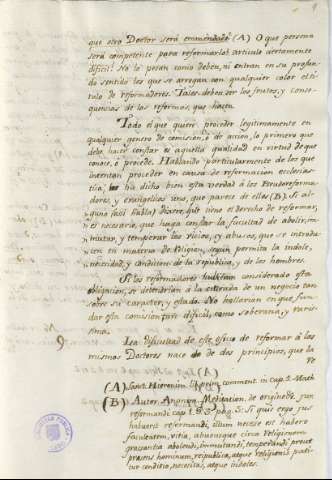 que otro Doctor será enmendado (A) O que persona
será competente para reformarlo? articulo ciertamente
dificil. No lo pesan como deben, ni entran en su profun-
do sentido los que se arrogan con qualquier color el ti-
tulo de reformadores. Tales deben ser los frutos, y conse-
quencias de las reformas, que hacen
Todo el que quiere proceder legitimamente en
qualquier genero de comision, ó de accion, lo primero que
debe hacer constar es aquella qualidad en virtud de que
conoce, ó procede. Hablando particularmente de los que
intentan proceder en causa de reformacion eclesias-
tica, ha dicho bien esta verdad á los Pseudoreforma-
dores, y evangelicos uno, que parece de ellos (B). Si al-
guno (asi habla) dixere, que tiene el derecho de reformar,
es necesario, que haga constar la facultad de abolir, im-
mutar, y temperar los vicios, y abusos, que se introdu-
cen en materia de Religion, segun permita la indole,
necesidad, y condicion de la republica, y de los hombres.
Si los reformadores hubieran considerado esta
obligacion, se detendrian á la entrada de un negocio tan
sobre su caracter, y estado. No hallarian en que fun-
dar esta comision tan dificil, como soberana, y rara-
sima.
La dificultad de este oficio de reformar á los
mismos Doctores nace de dos principios, que
(A) Sanct. Hieronim. lib. prim. comment. in cap. 5. Math.
(B) Autor. Anonym. Meditation. de origine
reformandi cap. 1. §. 3. pag. 5. Si quis ergo jus
habuerit reformandi, illum necesse est habere
facultatem, vitia, abususque circa Religionem
grassantia abolendi, immutandi, temperandi prout
præsens hominum, reipublicæ, atque religionis pati-
tur conditio, necesitas, atque indoles.